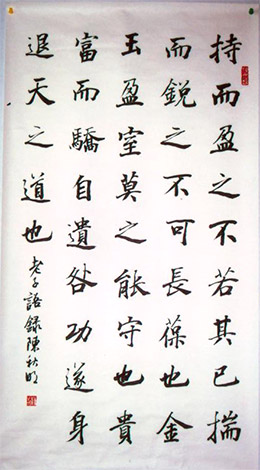 持而盈之不若其已揣
而銳之不可長葆也金
玉盈室莫之能守也貴
富而驕自遺咎功遂身
退天之道也
老子語錄陳秋明